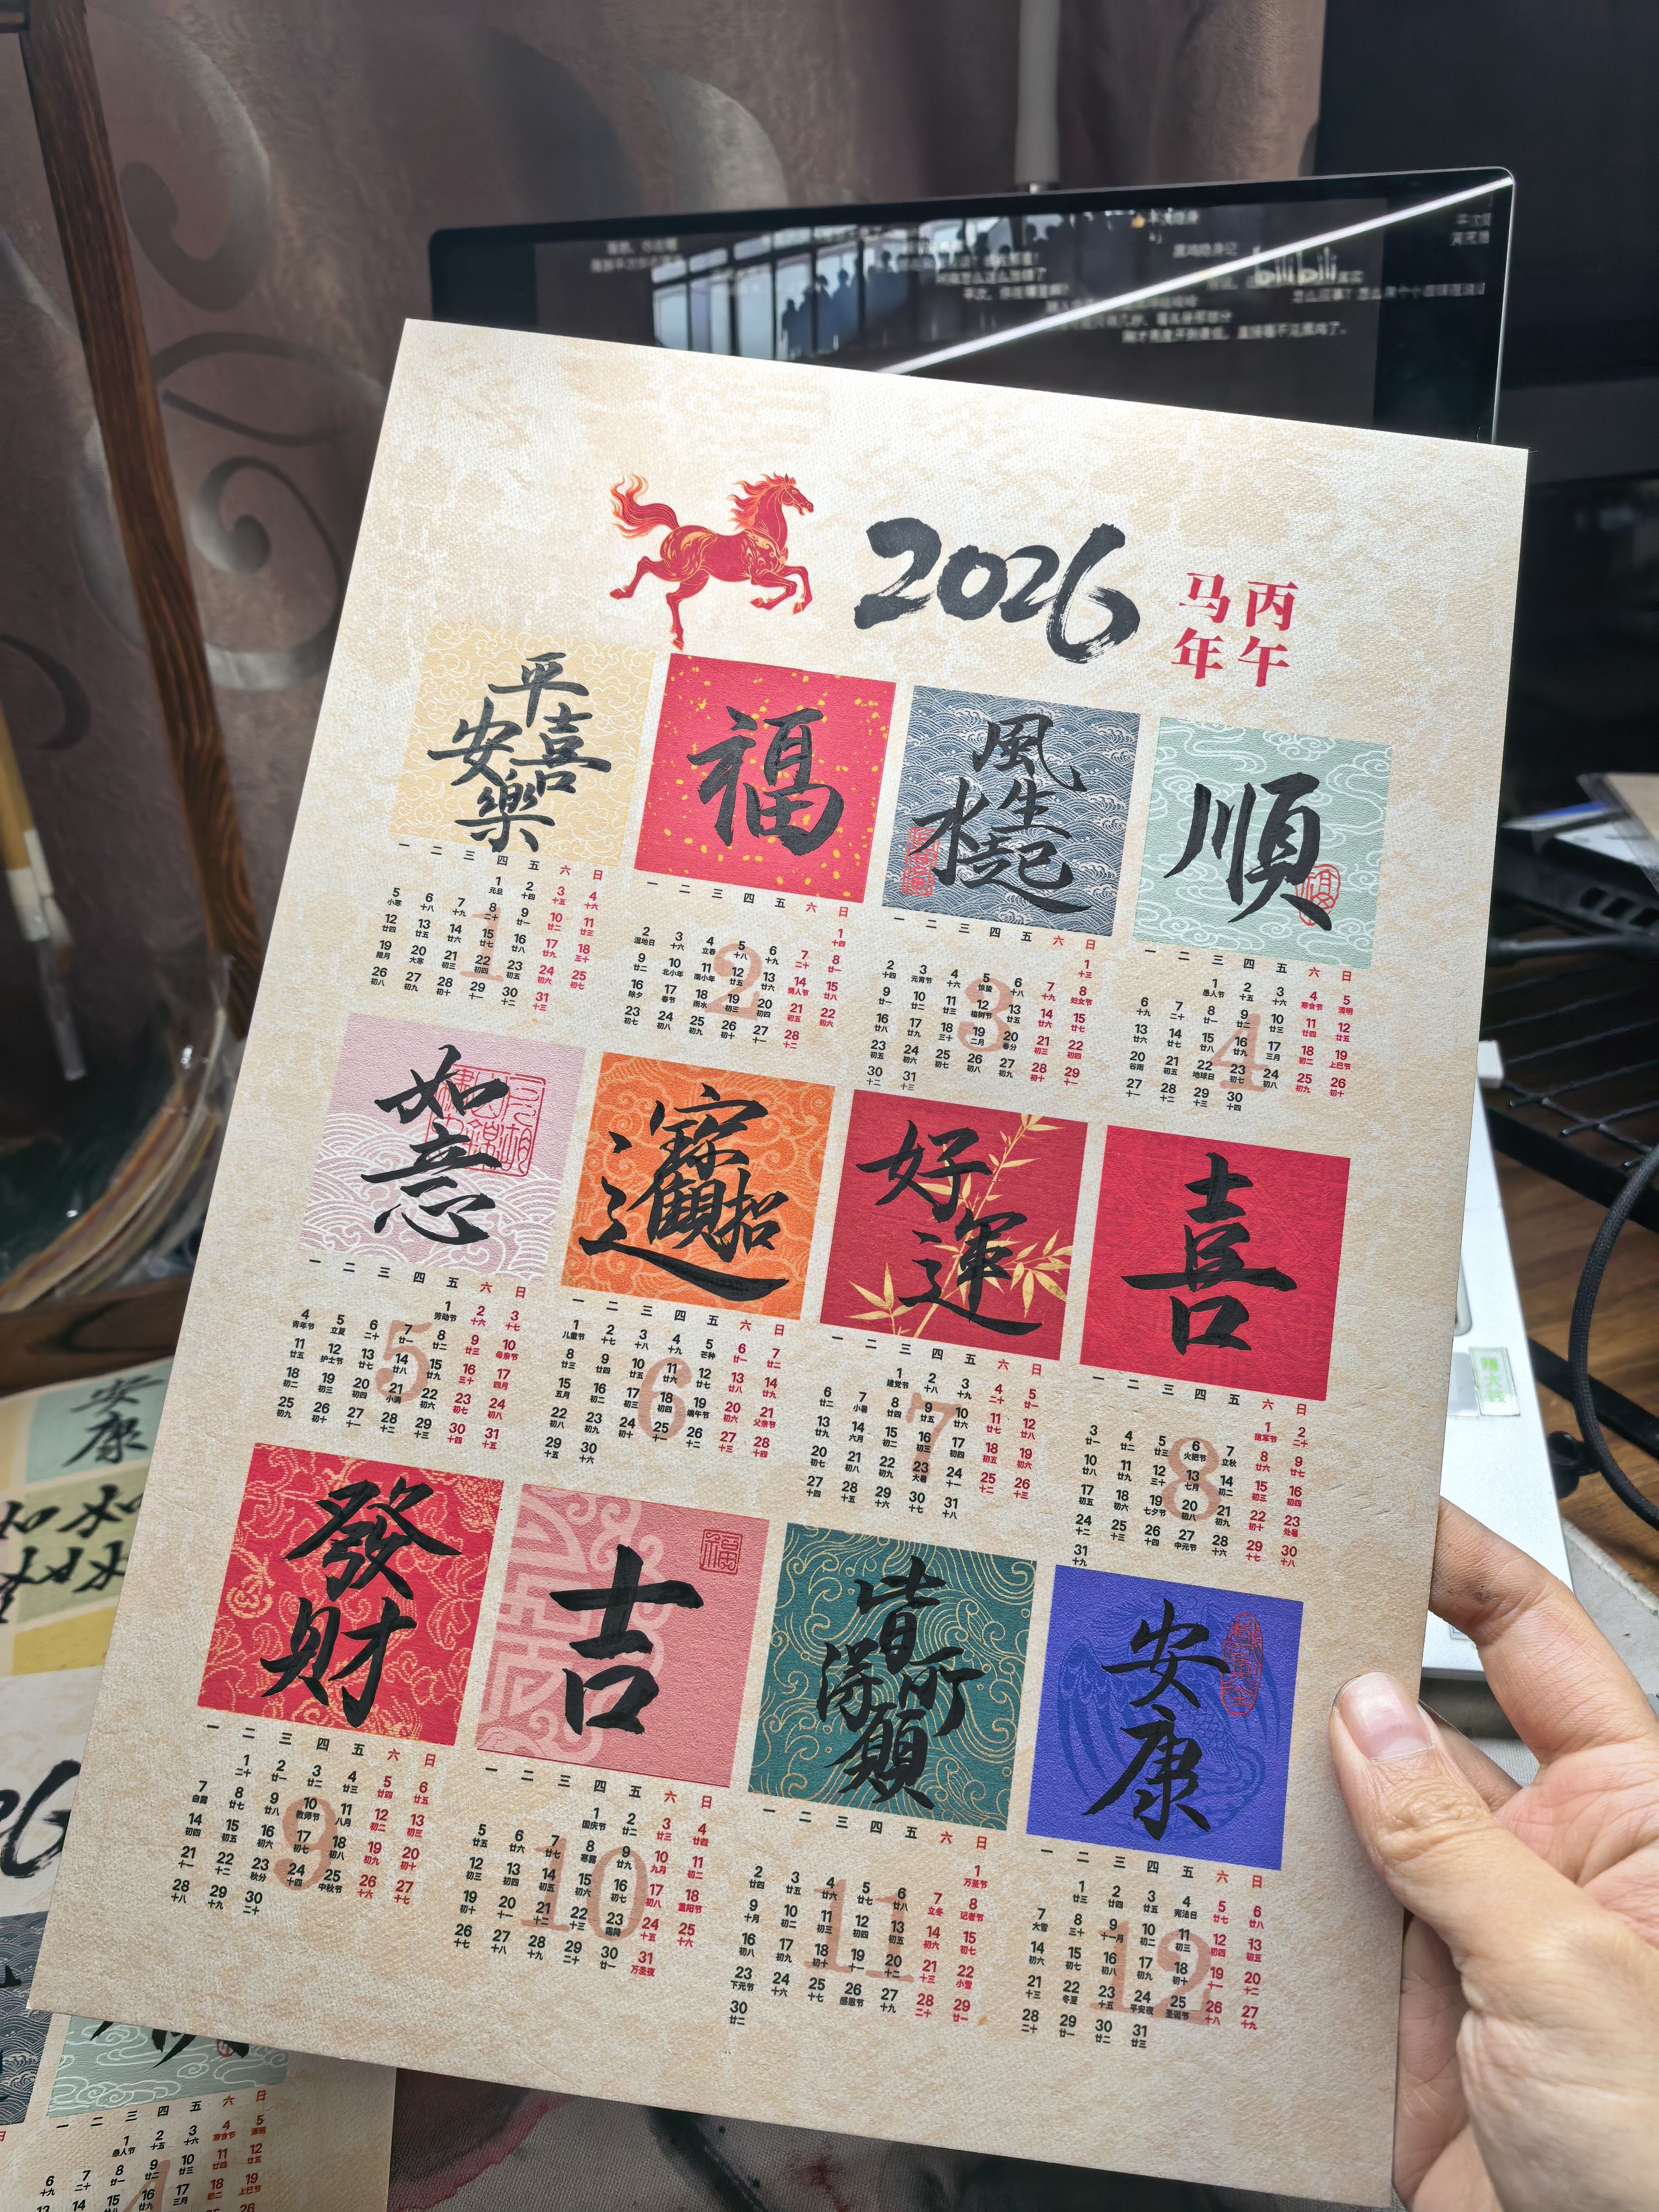 2026
丙午
马年
平安喜樂
福
風生水起
順
一 二 三 四 五 六 日
1 2 3 4
元旦 十四 十五 十六
5 6 7 8 9 10 11
小寒 十八 十九 二十 廿一 廿二 廿三
12 13 14 15 16 17 18
廿四 廿五 廿六 廿七 廿八 廿九 三十
19 20 21 22 23 24 25
腊月 大寒 初三 初四 初五 初六 初七
26 27 28 29 30 31
初八 初九 初十 十一 十二 十三
1
一 二 三 四 五 六 日
1
十四
2 3 4 5 6 7 8
湿地日 十六 立春 十八 十九 二十 廿一
9 10 11 12 13 14 15
廿二 北小年 南小年 廿五 廿六 情人节 廿八
16 17 18 19 20 21 22
除夕 春节 雨水 初三 初四 初五 初六
23 24 25 26 27 28
初七 初八 初九 初十 十一 十二
2
一 二 三 四 五 六 日
1
十三
2 3 4 5 6 7 8
十四 元宵节 十六 惊蛰 十八 十九 妇女节
9 10 11 12 13 14 15
廿一 廿二 廿三 植树节 廿五 廿六 廿七
16 17 18 19 20 21 22
廿八 廿九 三十 二月 春分 初三 初四
23 24 25 26 27 28 29
初五 初六 初七 初八 初九 初十 十一
30 31
十二 十三
3
一 二 三 四 五 六 日
1 2 3 4 5
愚人节 十五 十六 寒食节 清明
6 7 8 9 10 11 12
十九 二十 廿一 廿二 廿三 廿四 廿五
13 14 15 16 17 18 19
廿六 廿七 廿八 廿九 三月 初二 上巳节
20 21 22 23 24 25 26
谷雨 初五 地球日 初七 初八 初九 初十
27 28 29 30
十一 十二 十三 十四
4
如意
招財進寶
好運
喜
一 二 三 四 五 六 日
1 2 3
劳动节 十六 十七
4 5 6 7 8 9 10
青年节 立夏 二十 廿一 廿二 廿三 母亲节
11 12 13 14 15 16 17
廿五 护士节 廿七 廿八 廿九 三十 四月
18 19 20 21 22 23 24
初二 初三 初四 小满 初六 初七 初八
25 26 27 28 29 30 31
初九 初十 十一 十二 十三 十四 十五
5
一 二 三 四 五 六 日
1 2 3 4 5 6 7
儿童节 十七 十八 十九 芒种 廿一 廿二
8 9 10 11 12 13 14
廿三 廿四 廿五 廿六 廿七 廿八 廿九
15 16 17 18 19 20 21
五月 初二 初三 初四 端午节 初六 父亲节
22 23 24 25 26 27 28
初八 初九 初十 十一 十二 十三 十四
29 30
十五 十六
6
一 二 三 四 五 六 日
1 2 3 4 5
建党节 十八 十九 二十 廿一
6 7 8 9 10 11 12
廿二 小暑 廿四 廿五 廿六 廿七 廿八
13 14 15 16 17 18 19
廿九 六月 初二 初三 初四 初五 初六
20 21 22 23 24 25 26
初七 初八 初九 大暑 十一 十二 十三
27 28 29 30 31
十四 十五 十六 十七 十八
7
一 二 三 四 五 六 日
1 2
建军节 二十
3 4 5 6 7 8 9
廿一 廿二 廿三 火把节 立秋 廿六 廿七
10 11 12 13 14 15 16
廿八 廿九 三十 七月 初二 初三 初四
17 18 19 20 21 22 23
初五 初六 七夕节 初八 初九 初十 处暑
24 25 26 27 28 29 30
十二 十三 十四 中元节 十六 十七 十八
31
十九
8
發財
吉
皆得所願
安康
一 二 三 四 五 六 日
1 2 3 4 5 6
二十 廿一 廿二 廿三 廿四 廿五
7 8 9 10 11 12 13
白露 廿七 廿八 教师节 八月 初二 初三
14 15 16 17 18 19 20
初四 初五 初六 初七 初八 初九 初十
21 22 23 24 25 26 27
十一 十二 秋分 十四 中秋节 十六 十七
28 29 30
十八 十九 二十
9
一 二 三 四 五 六 日
1 2 3 4
国庆节 廿二 廿三 廿四
5 6 7 8 9 10 11
廿五 廿六 廿七 寒露 廿九 九月 初二
12 13 14 15 16 17 18
初三 初四 初五 初六 初七 初八 重阳节
19 20 21 22 23 24 25
初十 十一 十二 十三 霜降 十五 十六
26 27 28 29 30 31
十七 十八 十九 二十 廿一 万圣夜
10
一 二 三 四 五 六 日
1
万圣节
2 3 4 5 6 7 8
廿四 廿五 廿六 廿七 廿八 立冬 记者节
9 10 11 12 13 14 15
十月 初二 初三 初四 初五 初六 初七
16 17 18 19 20 21 22
初八 初九 初十 十一 十二 十三 小雪
23 24 25 26 27 28 29
下元节 十六 十七 感恩节 十九 二十 廿一
30
廿二
11
一 二 三 四 五 六 日
1 2 3 4 5 6
廿三 廿四 廿五 宪法日 廿七 廿八
7 8 9 10 11 12 13
大雪 三十 十一月 初二 初三 初四 初五
14 15 16 17 18 19 20
初六 初七 初八 初九 初十 十一 十二
21 22 23 24 25 26 27
十三 冬至 十五 平安夜 圣诞节 十八 十九
28 29 30 31
二十 廿一 廿二 廿三
12
安康